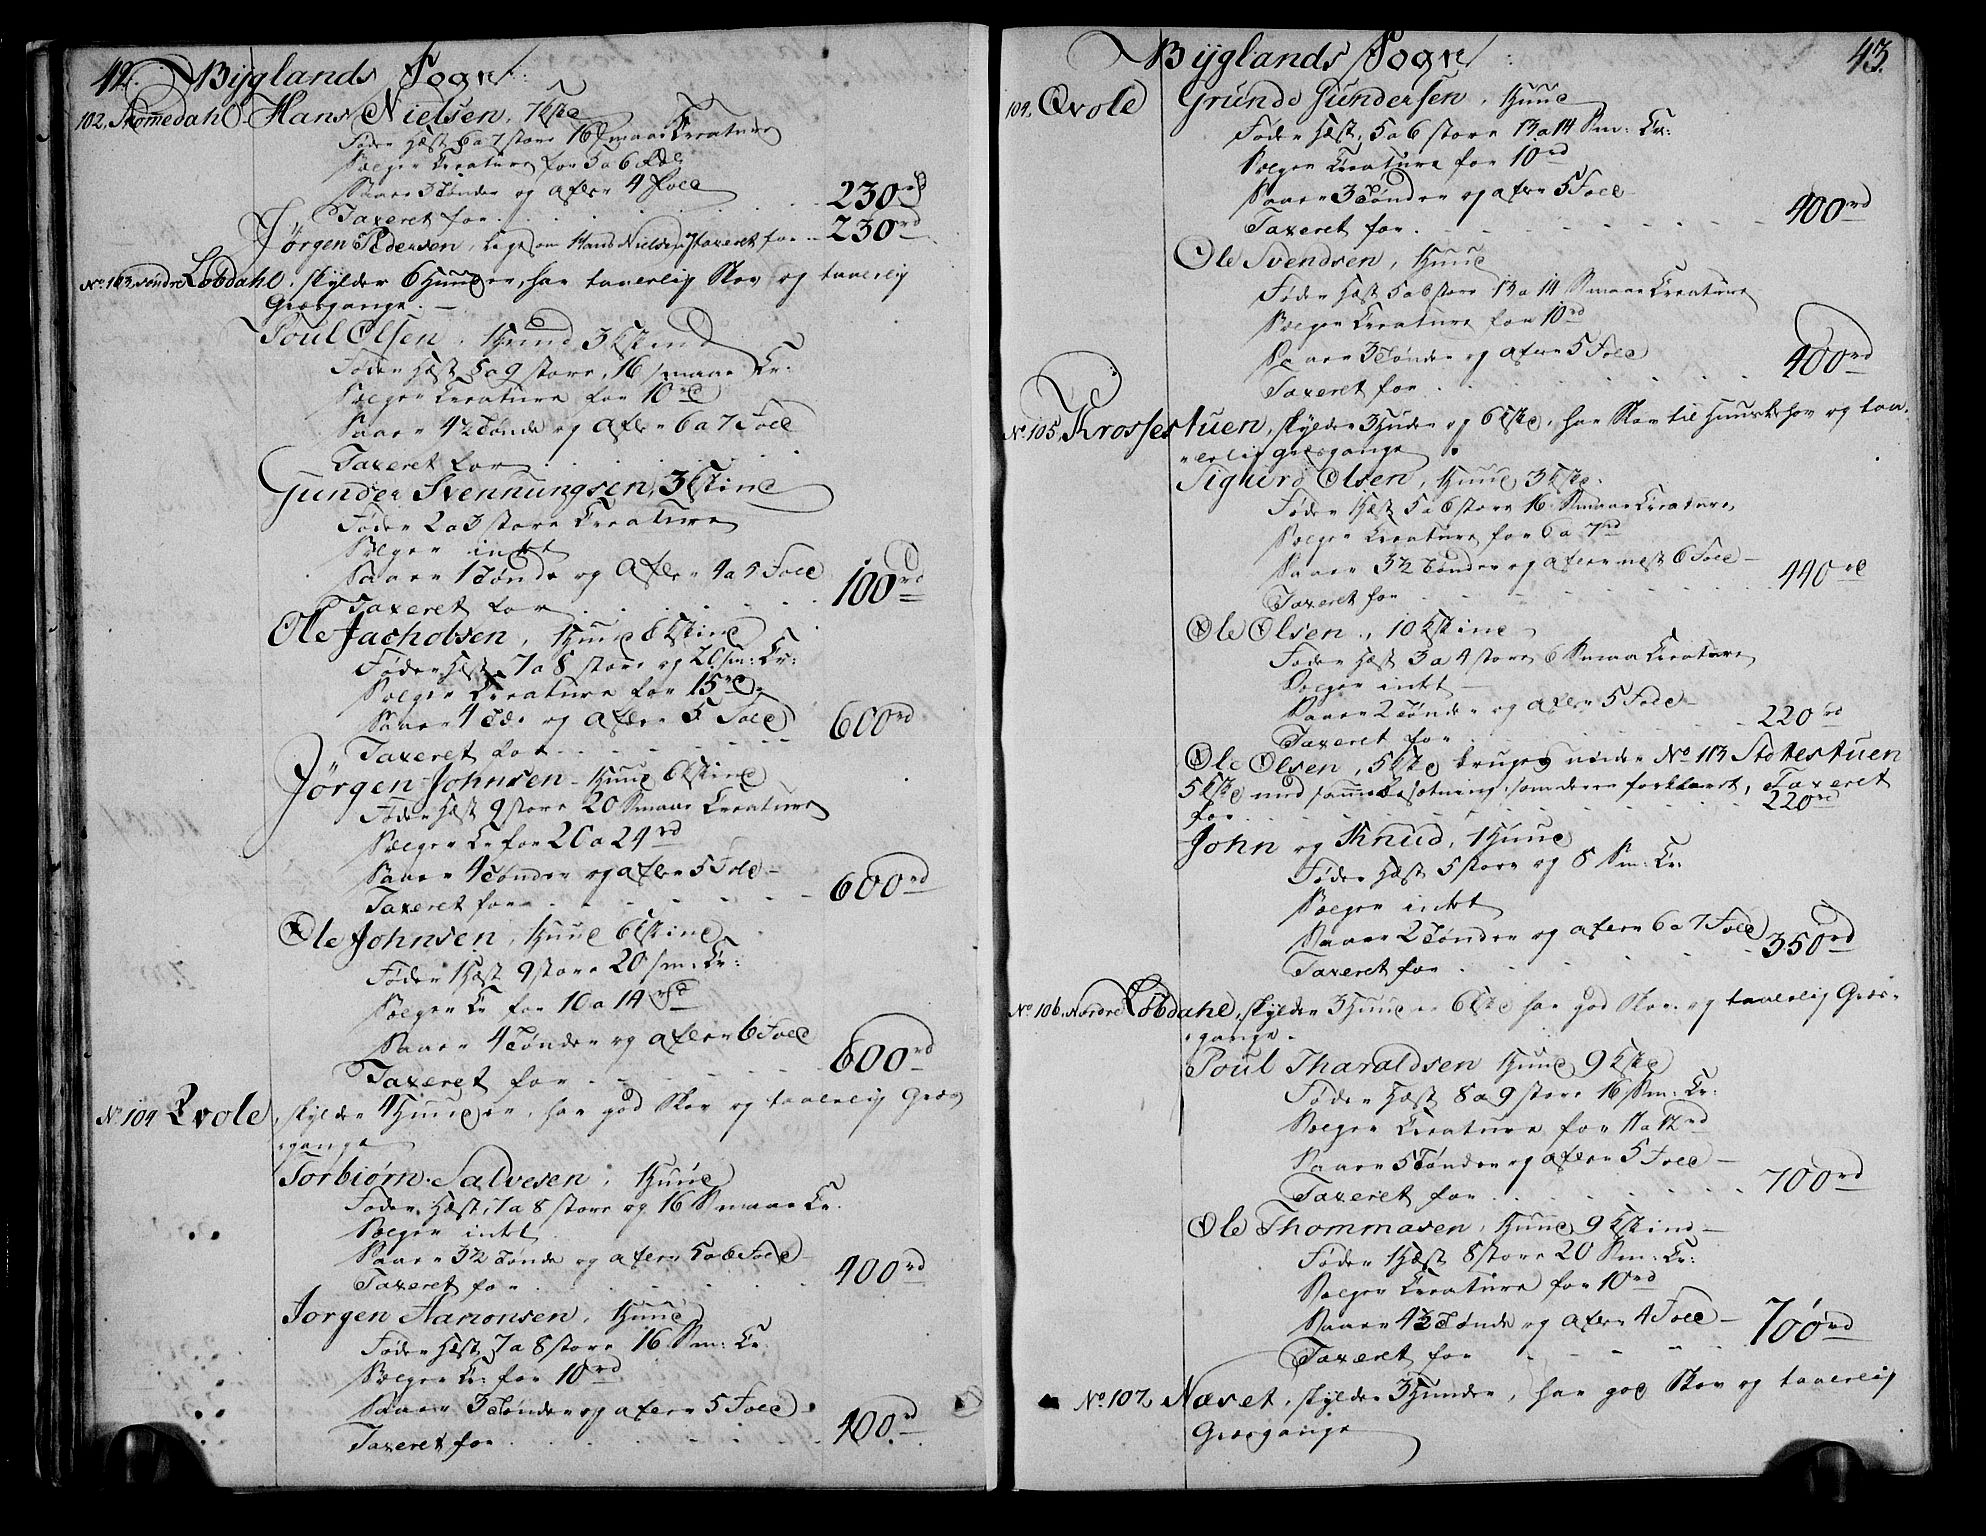 42. Byglands Sogn
102. Thomedahl Hans Nielsen, 7 Kske
Føder 1 Hæst 6 a 7 store 16 Smaae Creature
Sælger Creature for 5 a 6
Saaer 3 Tønder og afler 4 Fold
Taxeret for 230 rd
Jørgen Pedersen, ligesom Hans Nielsen, Taxeret for 230 rd
No. 103 Søndre Lobdahl, skylder 6 Huuder, har taalelig Skov og taalelig
Græsgange.
Poul Olsen, 1 Huud, 3 Kskind
Føder 1 Hæst 8 a 9 store, 16 smaae Cr:
Sælger Creature for 10 rd
Saaer 4½ Tønde og afler 6 a 7 Fold
Taxeret for
Gunder Svennungsen, 3 Kskind
Føder 2 a 3 store Creature
Sælger intet
Saaer 1 Tønde og afler 4 a 5 Fold
Taxeret for 100 rd
Ole Jacholsen, 1 Huud 6 Kskind
Føder 1 Hæst 7 a 8 store og 20 sm: Cr:
Sælger Creature for 15 rd
Saaer 4 Tdr og afler 5 Fold
Taxeret for 600 rd
Jørgen Johnsen 1 Huud 6 Kskind
Føder 1 Hæst 9 store 20 Smaae Creature
Sælger Cr for 20 a 24 rd
Saaer 4 Tønder og afler 5 Fold
Taxeret for 600 rd
Ole Johnsen, 1 Huud 6 Kskind
Føder 1 Hæst 9 store 20 sm: Cr:
Sælger Cr for 10 a 14 rd
Saaer 4 Tønder og afler 6 Fold
Taxeret for 600 rd
No. 104 Qvole, skylder 4 Huuder, har god Skov og taalelig Græs
gange
Torbiørn Salvesen, 1 Huud
Føder 1 Hæst, 7 a 8 store og 16 Smaae Cr.
Sælger intet
Saaer 3½ Tønde og afler 5 a 6 Fold
Taxeret for 400 rd
Jorgen Aanonsen, 1 Huud
Føder 1 Hæst 7 a 8 store 16 Sm: Cr.
Sælger Cr: for 10 rd
Saaer 3 Tønder og afler 5 Fold
Taxeret for 400 rd
Byglands Sogn 43.
104. Qvole Grunde Gundersen, 1 Huud
Føder 1 Hæst, 5 a 6 store 13 a 14 Sm: Cr:
Sælger Creature for 10 rd
Saaer 3 Tønder og afler 5 Fold
Taxeret for 400 rd
Ole Svendsen, 1 Huud
Føder 1 Hæst 5 a 6 store 13 a 14 Smaae Creature
Sælger Creature for 10 rd
Saaer 3 Tønder og afler 5 Fold
Taxeret for 400 rd
No. 105. Krossestuen, skylder 3 Huder og 6 Kske, har Skov til Huusbehov og taa-
lelig græsgange
Sigurd Olsen, 1 Huud 3 Kske.
Føder 1 Hæst 5 a 6 store 16 Smaae Creature
Sælger Creature for 6 a 7 rd
Saaer 3½ Tønder og afler mest 6 Fold
Taxeret for 440 rd
Ole Olsen, 10 Kskind
Føder 1 Hæst 3 a 4 store 6 Smaa Creature
Sælger intet
Saaer 2 Tønder og afler 5 Fold
Taxeret for 220 rd
Ole Olsen, 5 Kske bruges under No 113 Stottestuen
5 Kske med samme besætning som der er forklaret, Taxeret
for 220 rd
John og Knud, 1 Huud
Føder 1 Hæst 5 store og 8 Sm: Cr:
Sælger intet
Saaer 2 Tønder og afler 6 a 7 Fold
Taxeret for 350 rd
No 106. Nordre Lobdahl, skylder 3 Huuder 6 Kske har god Skov og taalelig Græs-
gange.
Poul Tharaldsen 1 Huud 9 Kske
Føder 1 Hæst 8 a 9 store 16 Sm: Cr:
Sælger Creature for 11 a 12 rd
Saaer 5 Tønder og afler 5 Fold
Taxeret for 700 rd
Ole Thommasen, 1 Huud 9 Kskind
Føder 1 Hæst 8 store 20 Sm: Cr:
Sælger Creature for 10 rd
Saaer 4½ Tønde og afler 4 Fold
Taxeret for 700 rd
No. 107. Næset, skylder 3 Hunder, har god Skov og taalelig
Græsgange